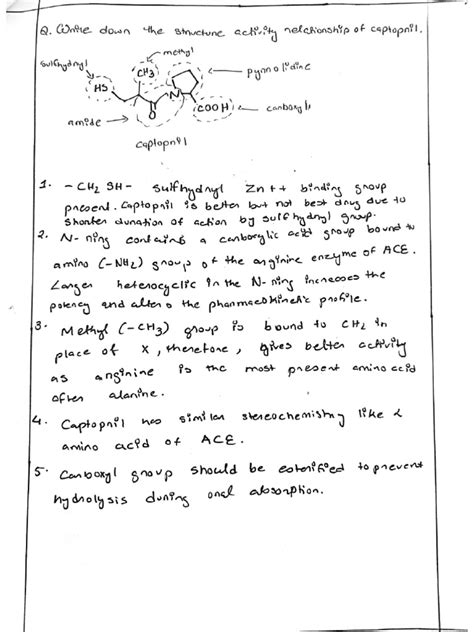 Q. Write down the structure activity relationship of captopril.
methyl
sulfhydryl
CH3
pyrrolidine
HS
N
COOH
carboxyl
amide
O
captopril
1. -CH2 SH- sulfhydryl Zn++ binding group
present. Captopril is better but not best drug due to
shorter duration of action by sulfhydryl group.
2. N-ring contains a carboxylic acid group bound to
amino (-NH2) group of the arginine enzyme of ACE.
Larger heterocyclic in the N-ring increases the
potency and alters the pharmacokinetic profile.
3. Methyl (-CH3) group is bound to CH2 in
place of X, therefore, gives better activity
as arginine is the most present amino acid
after alanine.
4. Captopril has similar stereochemistry like L
amino acid of ACE.
5. Carboxyl group should be esterified to prevent
hydrolysis during oral absorption.